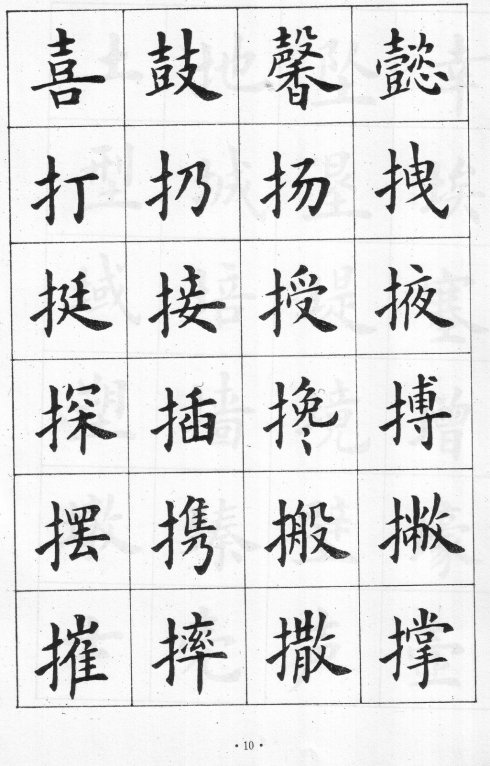 喜鼓馨懿
打扔扬拽
挺接授掖
探插搀搏
摆携搬撇
摧摔撒撑
·10·